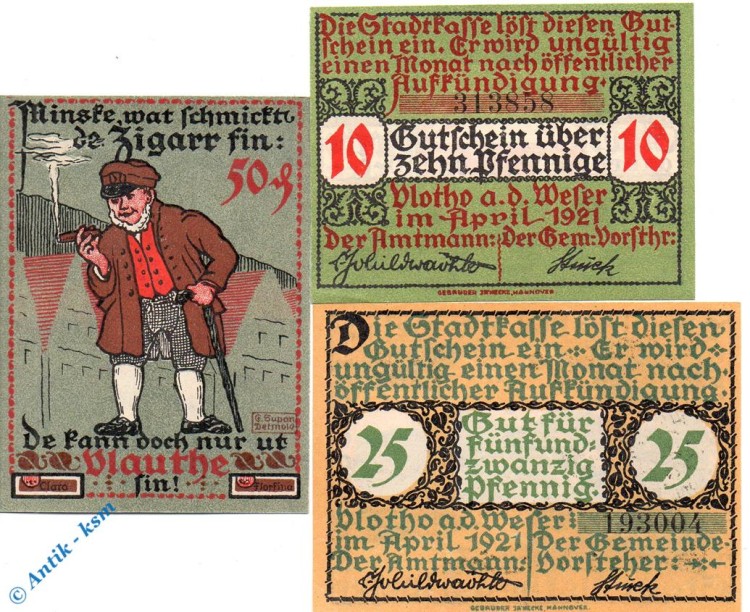 Minske, wat schmickt
de Zigarr fin:
50 ₰
G. Supan
Detmold
De kann doch nur ut
Vlauthe
sin!
Clara
Die Stadtkasse löst diesen Gut-
schein ein. Er wird ungültig
einen Monat nach öffentlicher
Aufkündigung.
313858
10 Gutschein über 10
zehn Pfennige
Vlotho a.d. Weser
im April 1921
Der Amtmann: Der Gem: Vorsthr:
GEBRÜDER JÄNECKE, HANNOVER.
Die Stadtkasse löst diesen
Gutschein ein. Er wird
ungültig einen Monat nach
öffentlicher Aufkündigung.
25 Gut für 25
fünfund-
zwanzig
Pfennig.
Vlotho a.d. Weser: 193004
im April 1921 Der Gemeinde-
Der Amtmann: Vorsteher:
GEBRÜDER JÄNECKE, HANNOVER.
© Antik - ksm